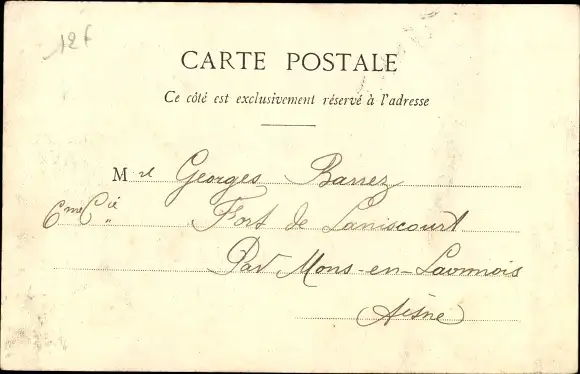 12f
CARTE POSTALE
Ce côté est exclusivement réservé à l'adresse
Mr Georges Barrez
6me Cie Fort de Laniscourt
Par Mons-en-Laonnois
Aisne